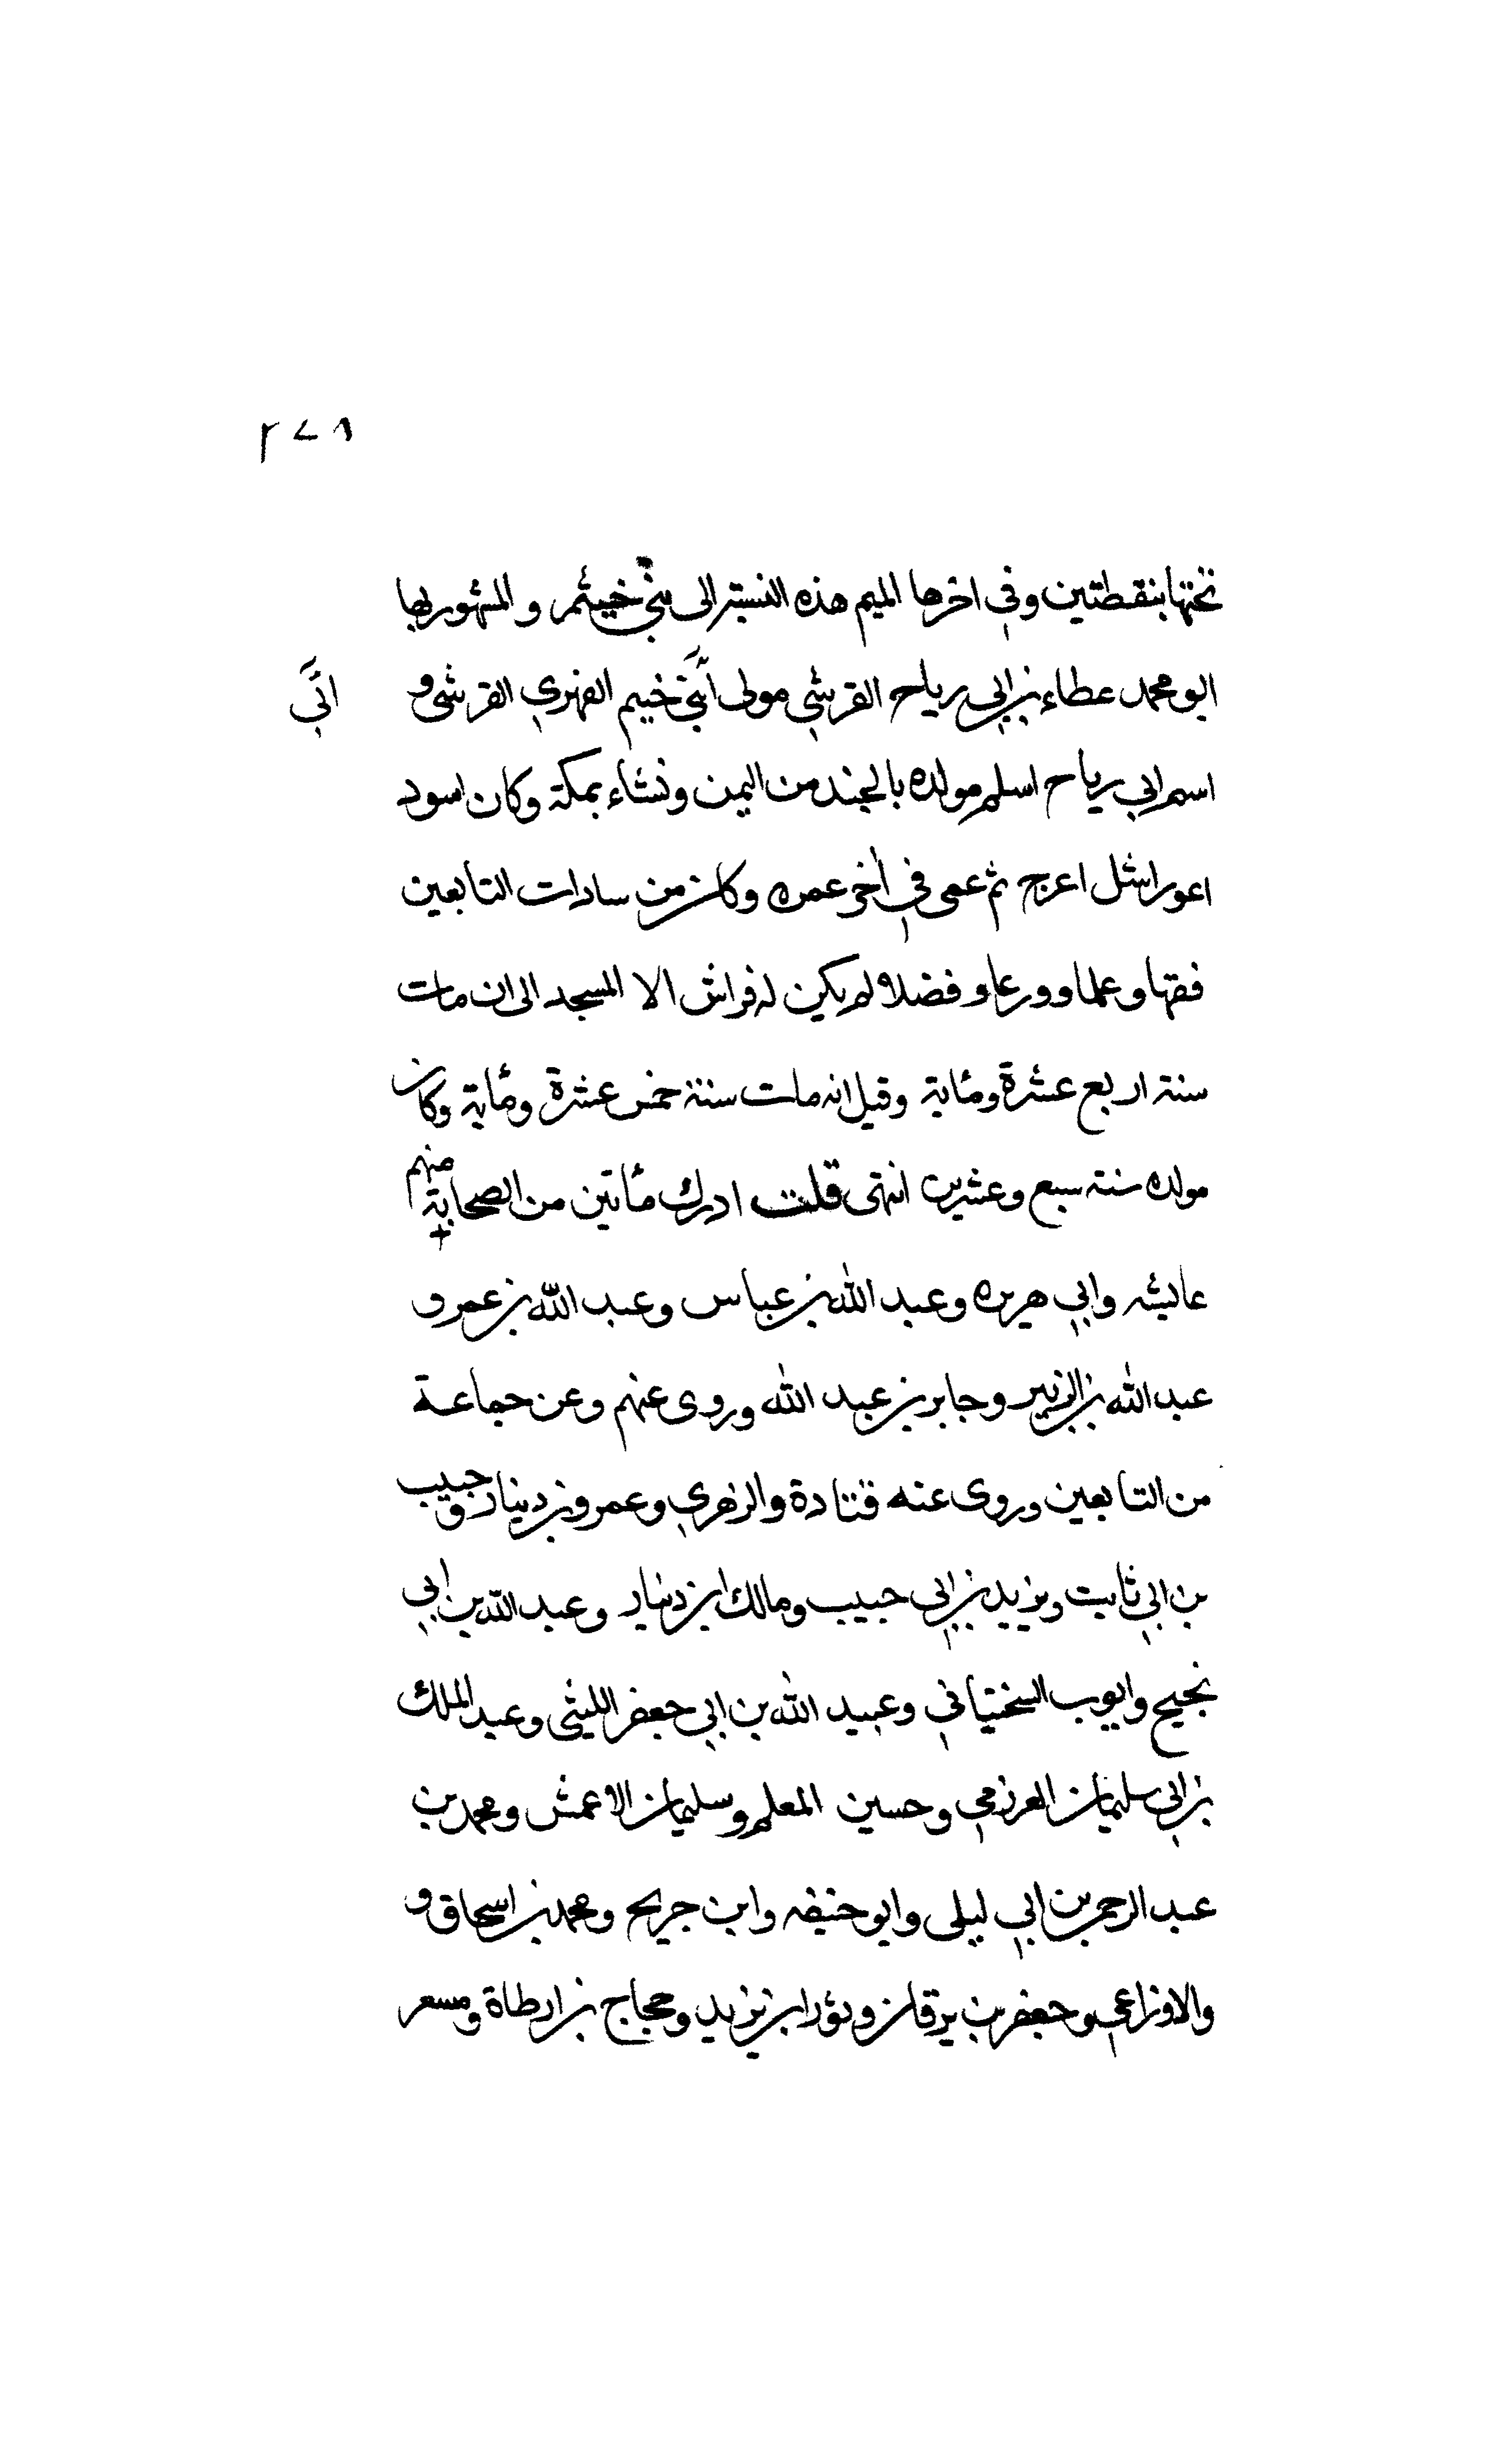 ٢٧٨
تحتها بنقطتين وفي اخرها الميم هذه النسبة الى بني خيثم والمشهور بها
ابو محمد عطاء بن ابي رياح القرشي مولى ابَّي خيثم الفهري القرشي و
ابَّي
اسم ابي رياح اسلم مولده بالجند من اليمن ونشاء بمكة وكان اسود
اعور اشل اعرج ثم عمى في أخر عمره وكان من سادات التابعين
فقها وعلما وورعا وفضلا لم يكن له فراش الا المسجد الى ان مات
سنة اربع عشرة ومئاية وقيل انه مات سنة خمس عشرة ومئاية وكان
مولده سنة سبع وعشرين انتهى قلت ادرك مئاتين من الصحابة منهم
عايشه وابي هريره وعبد الله بن عباس وعبد الله بن عمر و
عبد الله بن الزبير وجابر بن عبد الله وروى عنهم وعن جماعة
من التابعين وروى عنه قتادة والزهري وعمرو بن دينار وحبيب
بن ابي ثابت ويزيد بن ابي حبيب ومالك ابن دينار وعبد الله بن ابي
نجيح وايوب السختياني وعبيد الله بن ابي جعفر الليثي وعبد الملك
بن ابي سليمان العرزمي وحسين المعلم وسليمان الاعمش ومحمد بن
عبد الرحمن بن ابي ليلى وابو حنيفه وابن جريح ومحمد بن اسحاق و
والاوزاعي وجعفر بن برقان وثور ابن يزيد وحجاج بن ارطاة ومسعر